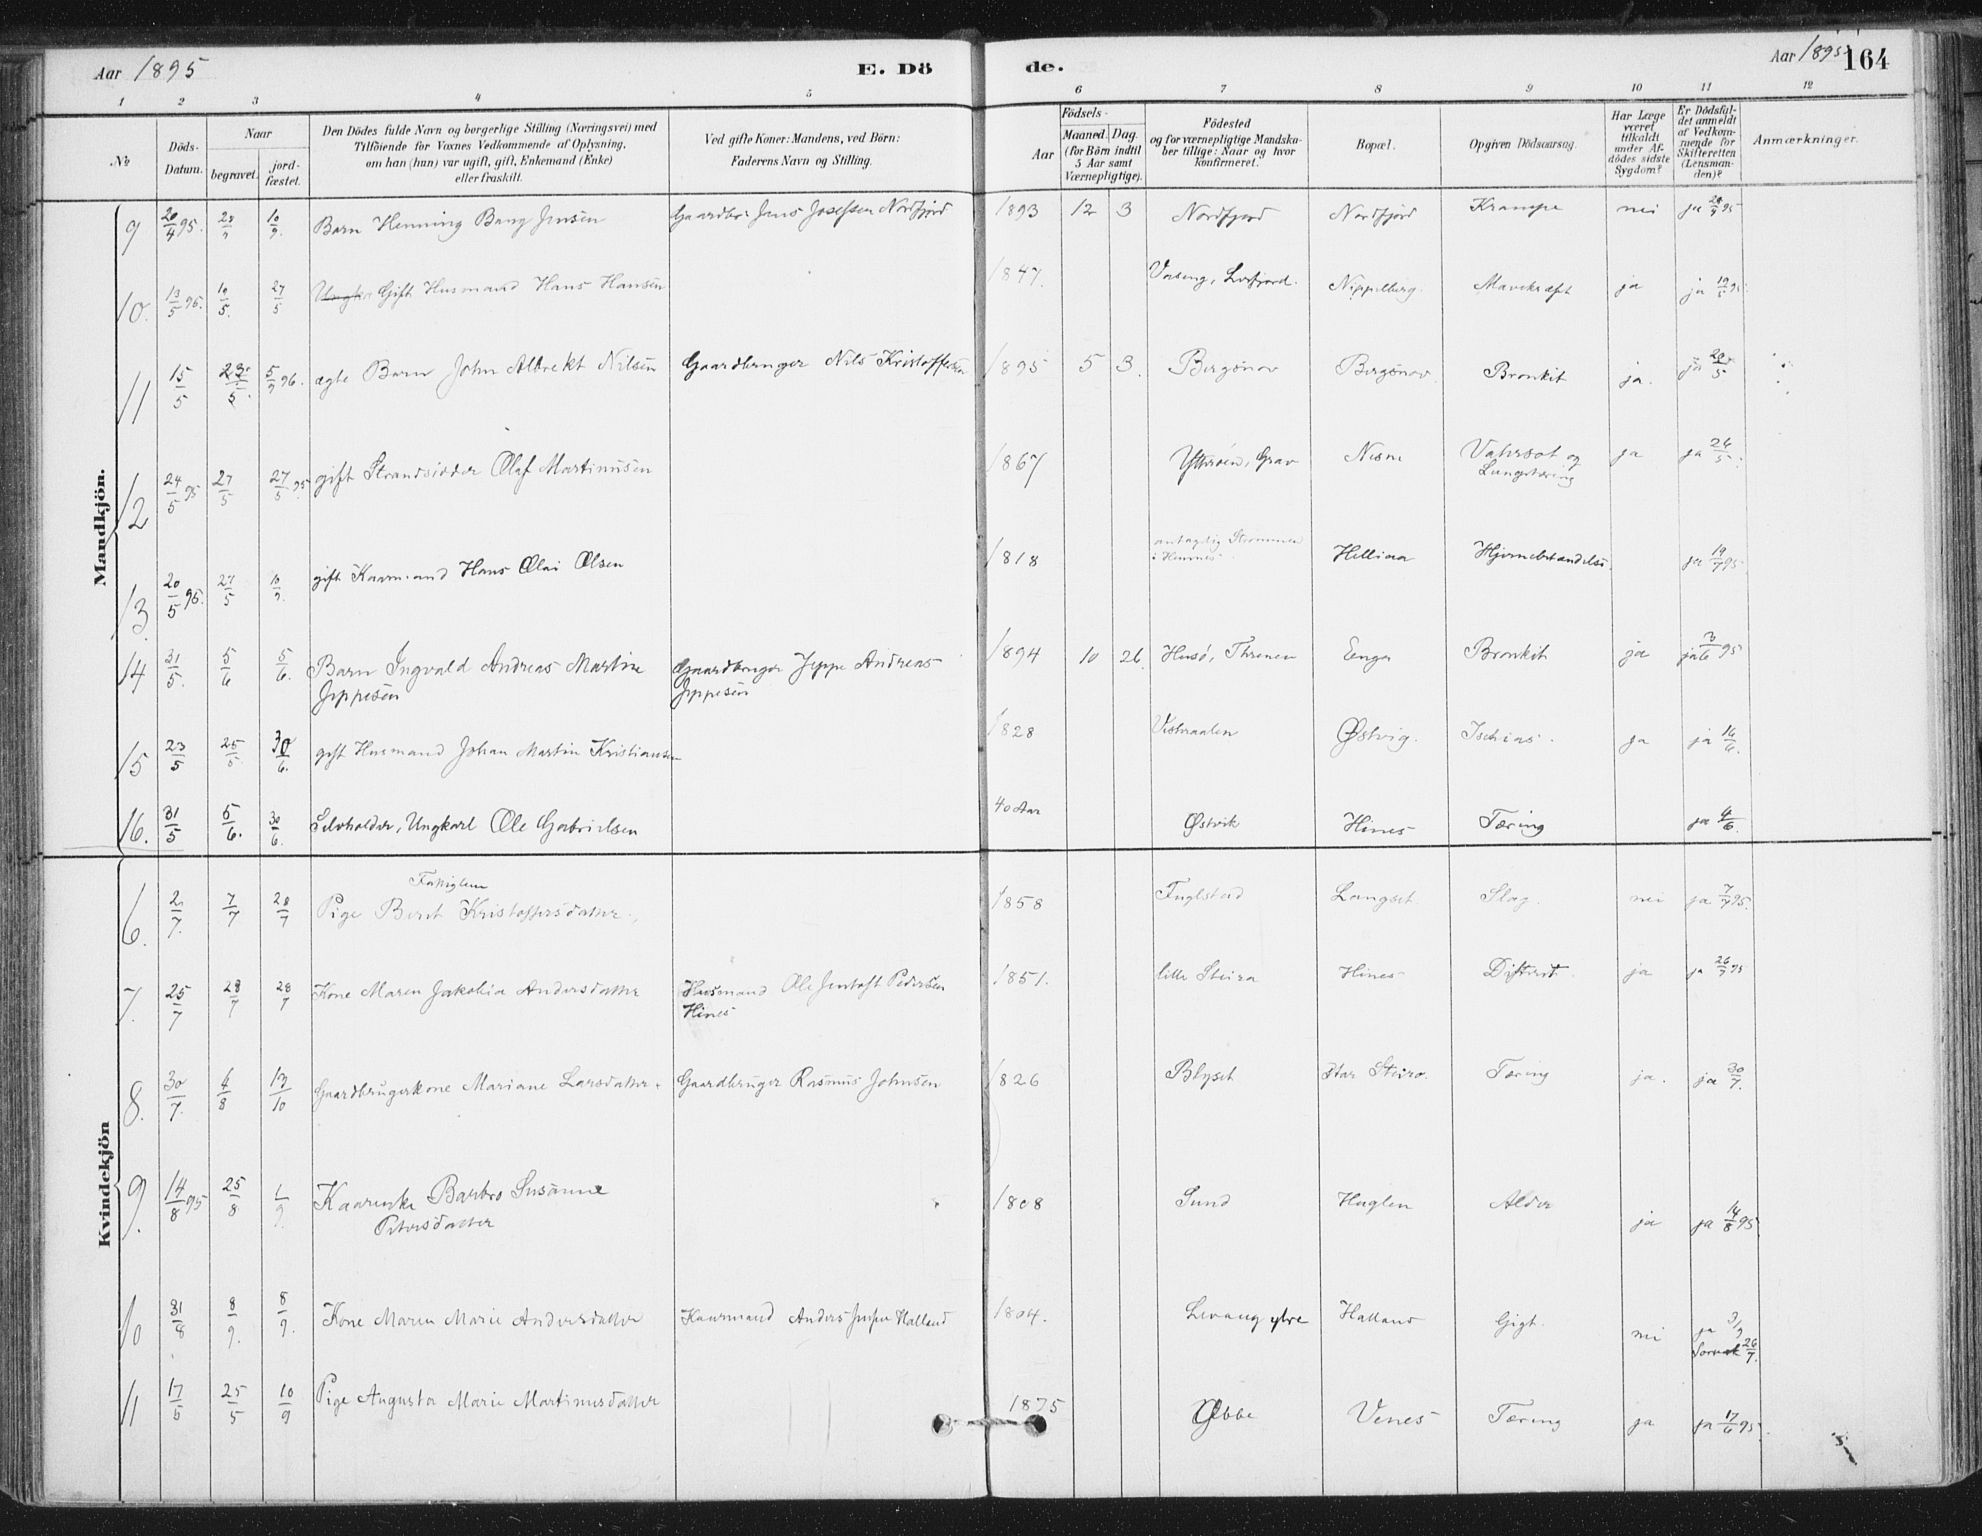 Aar 1895
E. Döde.
Aar 1895
164
1 2 3 4 5 6 7 8 9 10 11 12
No
Döds-Datum.
Naar
begravet.
jord-fæstet.
Den Dödes fulde Navn og borgerlige Stilling (Næringsvei) med
Tilföiende for Voxnes Vedkommende af Oplysning,
om han (hun) var ugift, gift, Enkemand (Enke)
eller fraskilt.
Ved gifte Koner: Mandens, ved Børn:
Faderens Navn og Stilling.
Födsels-
Aar
Maaned. Dag.
(for Börn indtil
5 Aar samt
Værnepligtige).
Födested
og for værnepligtige Mandska-
ber tillige: Naar og hvor
konfirmeret.
Bopæl.
Opgiven Dödsaarsag.
Har Læge
været
tilkaldt
under Af-
dödes sidste
Sygdom?
Er Dödsfal-
det anmeldt
af Vedkom-
mende for
Skifteretten
(Lensman-
den)?
Anmærkninger.
Mandkjön.
9 20/4 95. 10/9. Barn Henning Bang Jensen Gaardbr. Jens Josefsen Nordfjord 1893 12 3 Nordfjord Nordfjord Krampe nei ja
10. 13/5 95. 27/5 Gift Husmand Hans Hansen 1847. Nippelberg. ja ja 19/5 95.
11 15/5 5/9 96. ægte Barn John Albrekt Nilsen Gaardbruger Nils Kristoffersen 1895 5 3. Bergsnov Bergsnov. Bronkit ja. ja 20/5
12 24/5 95 27/5 27/5 95 gift Strandsidder Olaf Martinusen 1867 Ytterøen, Grav Nesne Vatersot og
Lungetæring ja ja 24/5.
13. 20/5 95. 27/5 10/9. gift Kaarmand Hans Olai Olsen 1818 antagelig Strømmen
i Hemnes. Hellaa Hjernebetændelse. ja 19/7 95
14 31/5. 5/6 5/6. Barn Ingvald Andreas Martin
Jeppesen Gaardbruger Jeppe Andreas
Jeppesen 1894 10 26. Husö, Thrænen Enga Bronkit ja ja 3/6 95
15 23/5 25/5. 30/6. gift Husmand Johan Martin Kristiansen 1828 Østvig. Ischias. ja ja 16/6.
16. 31/5 5/6. 30/6. Selvholder, Ungkarl Ole Gabrielsen 40 Aar Østvik Hines Tæring ja 4/6.
Kvindekjön
6. 2/7. 7/7 28/7 Fattiglem
Pige Berit Kristoffersdatter. 1858 Fuglstad Langset. Slag. nei ja 7/7 95.
7. 25/7 28/7 28/7 Kone Maren Jakobia Andersdatter Husmand Ole Jentoft Pedersen
Hines 1851. lille Steira Hines Difterit. ja ja
8. 30/7. 4/8 19/10 Gaardbrugerkone Mariane Larsdatter. Gaardbruger Rasmus Johnsen 1826 Blyset Star Steiro. Tæring ja. ja 30/7.
9. 14/8 95 25/8 1/9. Kaarenke Barbro Susanne
Petersdatter 1808 Sund Huglen Alder ja ja 14/8 95
10 31/8 8/9. 8/9. Kone Maren Marie Andersdatter Kaarmand Anders Halland 1804. Levang ytre Halland Gigt. nei ja 3/9
11 17/5 25/5 10/9 Pige Augusta Marie Martinusdatter 1875 Øbbe Venes Tæring ja ja 17/6 95.